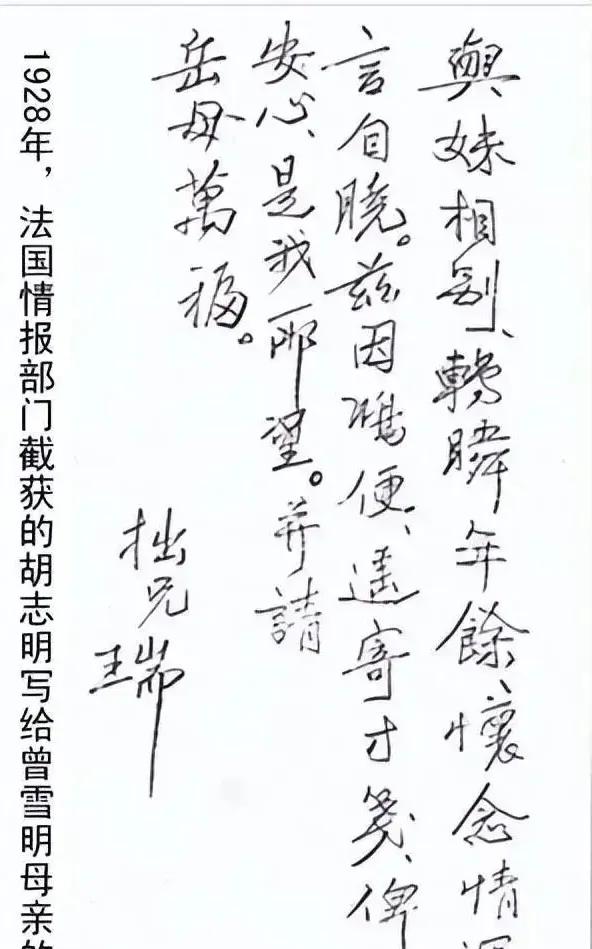 與妹相别、轉瞬年餘、懷念情
言自曉。兹因鴻便、遥寄寸箋、俾
安心、是我所望。并請
岳母萬福。
拙兄
瑞
1928年，法国情报部门截获的胡志明写给曾雪明母亲的